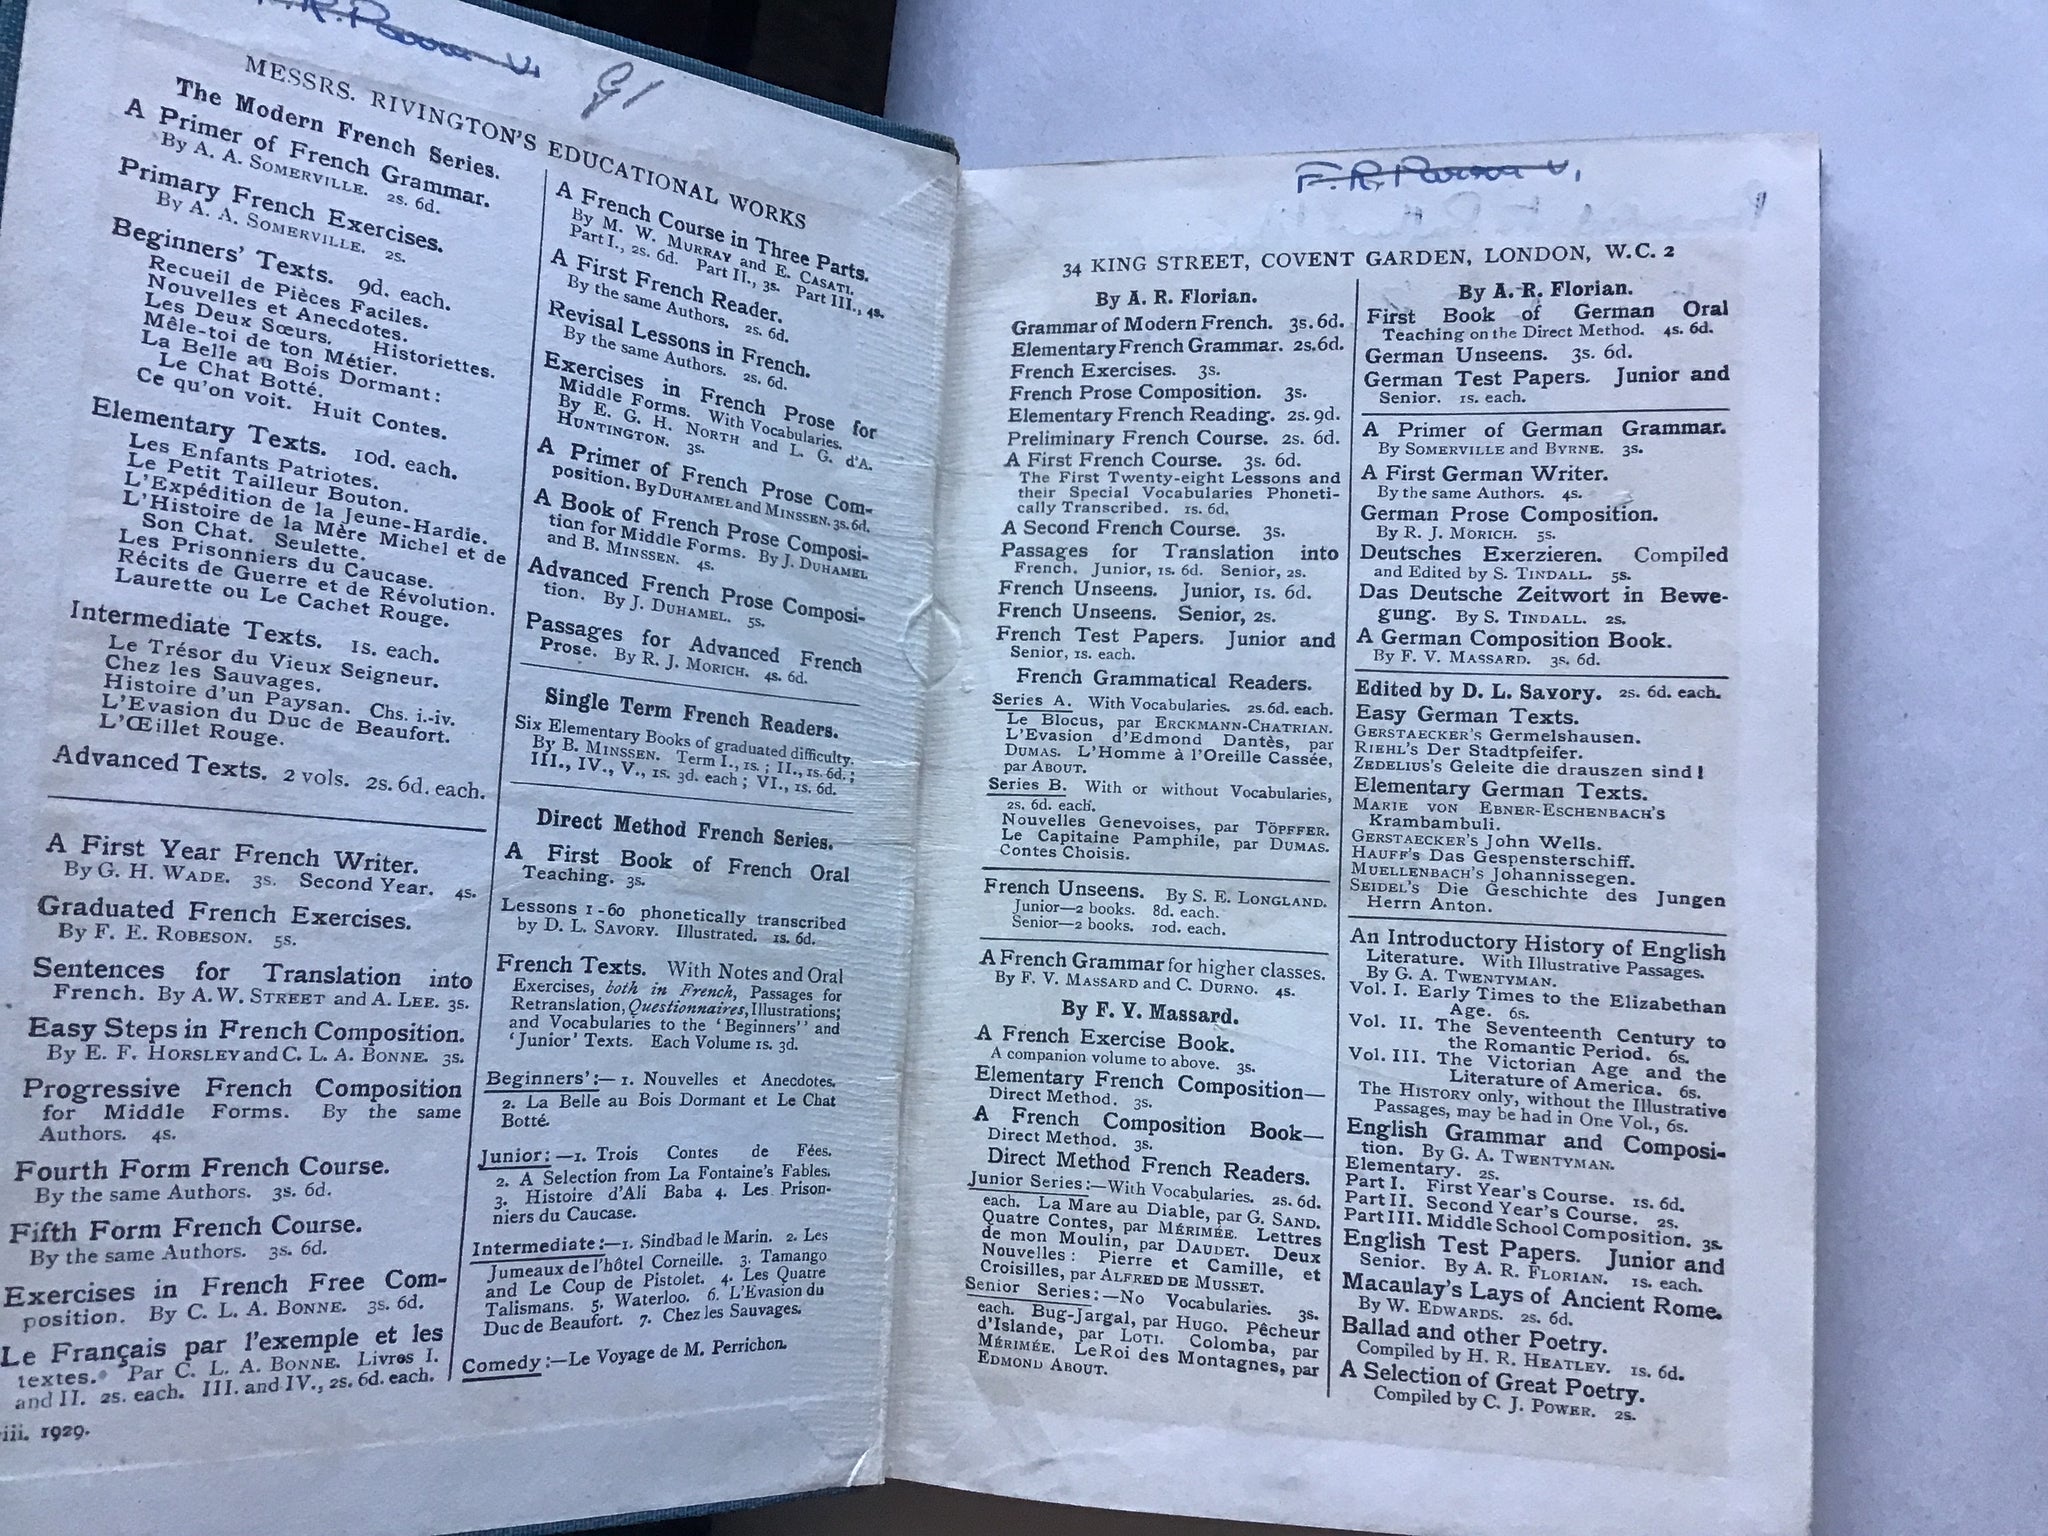 F. R.
MESSRS. RIVINGTON'S EDUCATIONAL WORKS
The Modern French Series.
A Primer of French Grammar.
By A. A. SOMERVILLE. 2s. 6d.
Primary French Exercises.
By A. A. SOMERVILLE. 2s.
Beginners' Texts. 9d. each.
Recueil de Pièces Faciles.
Nouvelles et Anecdotes.
Les Deux Sœurs. Historiettes.
Mêle-toi de ton Métier.
La Belle au Bois Dormant:
Le Chat Botté.
Ce qu'on voit. Huit Contes.
Elementary Texts. 10d. each.
Les Enfants Patriotes.
Le Petit Tailleur Bouton.
L'Expédition de la Jeune-Hardie.
L'Histoire de la Mère Michel et de
Son Chat. Seulette.
Les Prisonniers du Caucase.
Récits de Guerre et de Révolution.
Laurette ou Le Cachet Rouge.
Intermediate Texts. 1s. each.
Le Trésor du Vieux Seigneur.
Chez les Sauvages.
Histoire d'un Paysan. Chs. i.-iv.
L'Evasion du Duc de Beaufort.
L'Œillet Rouge.
Advanced Texts. 2 vols. 2s. 6d. each.
A First Year French Writer.
By G. H. WADE. 3s. Second Year. 4s.
Graduated French Exercises.
By F. E. ROBESON. 5s.
Sentences for Translation into
French. By A. W. STREET and A. LEE. 3s.
Easy Steps in French Composition.
By E. F. HORSLEY and C. L. A. BONNE. 3s.
Progressive French Composition
for Middle Forms. By the same
Authors. 4s.
Fourth Form French Course.
By the same Authors. 3s. 6d.
Fifth Form French Course.
By the same Authors. 3s. 6d.
Exercises in French Free Com-
position. By C. L. A. BONNE. 3s. 6d.
Le Français par l'exemple et les
textes. Par C. L. A. BONNE. Livres I.
and II. 2s. each. III. and IV., 2s. 6d. each.
iii. 1929.
A French Course in Three Parts.
By M. W. MURRAY and E. CASATI.
Part I., 2s. 6d. Part II., 3s. Part III., 4s.
A First French Reader.
By the same Authors. 2s. 6d.
Revisal Lessons in French.
By the same Authors. 2s. 6d.
Exercises in French Prose for
Middle Forms. With Vocabularies.
By E. G. H. NORTH and L. G. d'A.
HUNTINGTON. 3s.
A Primer of French Prose Com-
position. By DUHAMEL and MINSSEN. 3s. 6d.
A Book of French Prose Composi-
tion for Middle Forms. By J. DUHAMEL
and B. MINSSEN. 4s.
Advanced French Prose Composi-
tion. By J. DUHAMEL. 5s.
Passages for Advanced French
Prose. By R. J. MORICH. 4s. 6d.
Single Term French Readers.
Six Elementary Books of graduated difficulty.
By B. MINSSEN. Term I., 1s.; II., 1s. 6d.;
III., IV., V., 1s. 3d. each; VI., 1s. 6d.
Direct Method French Series.
A First Book of French Oral
Teaching. 3s.
Lessons 1-60 phonetically transcribed
by D. L. SAVORY. Illustrated. 1s. 6d.
French Texts. With Notes and Oral
Exercises, both in French, Passages for
Retranslation, Questionnaires, Illustrations;
and Vocabularies to the 'Beginners'' and
'Junior' Texts. Each Volume 1s. 3d.
Beginners':—1. Nouvelles et Anecdotes.
2. La Belle au Bois Dormant et Le Chat
Botté.
Junior:—1. Trois Contes de Fées.
2. A Selection from La Fontaine's Fables.
3. Histoire d'Ali Baba 4. Les Prison-
niers du Caucase.
Intermediate:—1. Sindbad le Marin. 2. Les
Jumeaux de l'hôtel Corneille. 3. Tamango
and Le Coup de Pistolet. 4. Les Quatre
Talismans. 5. Waterloo. 6. L'Evasion du
Duc de Beaufort. 7. Chez les Sauvages.
Comedy:—Le Voyage de M. Perrichon.
F. R.
34 KING STREET, COVENT GARDEN, LONDON, W.C. 2
By A. R. Florian.
Grammar of Modern French. 3s. 6d.
Elementary French Grammar. 2s. 6d.
French Exercises. 3s.
French Prose Composition. 3s.
Elementary French Reading. 2s. 9d.
Preliminary French Course. 2s. 6d.
A First French Course. 3s. 6d.
The First Twenty-eight Lessons and
their Special Vocabularies Phoneti-
cally Transcribed. 1s. 6d.
A Second French Course. 3s.
Passages for Translation into
French. Junior, 1s. 6d. Senior, 2s.
French Unseens. Junior, 1s. 6d.
French Unseens. Senior, 2s.
French Test Papers. Junior and
Senior, 1s. each.
French Grammatical Readers.
Series A. With Vocabularies. 2s. 6d. each.
Le Blocus, par ERCKMANN-CHATRIAN.
L'Evasion d'Edmond Dantès, par
DUMAS. L'Homme à l'Oreille Cassée,
par ABOUT.
Series B. With or without Vocabularies,
2s. 6d. each.
Nouvelles Genevoises, par TÖPFFER.
Le Capitaine Pamphile, par DUMAS.
Contes Choisis.
French Unseens. By S. E. LONGLAND.
Junior—2 books. 8d. each.
Senior—2 books. 10d. each.
A French Grammar for higher classes.
By F. V. MASSARD and C. DURNO. 4s.
By F. V. Massard.
A French Exercise Book.
A companion volume to above. 3s.
Elementary French Composition—
Direct Method. 3s.
A French Composition Book—
Direct Method. 3s.
Direct Method French Readers.
Junior Series:—With Vocabularies. 2s. 6d.
each. La Mare au Diable, par G. SAND.
Quatre Contes, par MÉRIMÉE. Lettres
de mon Moulin, par DAUDET. Deux
Nouvelles: Pierre et Camille, et
Croisilles, par ALFRED DE MUSSET.
Senior Series:—No Vocabularies. 3s.
each. Bug-Jargal, par HUGO. Pêcheur
d'Islande, par LOTI. Colomba, par
MÉRIMÉE. Le Roi des Montagnes, par
EDMOND ABOUT.
By A. R. Florian.
First Book of German Oral
Teaching on the Direct Method. 4s. 6d.
German Unseens. 3s. 6d.
German Test Papers. Junior and
Senior. 1s. each.
A Primer of German Grammar.
By SOMERVILLE and BYRNE. 3s.
A First German Writer.
By the same Authors. 4s.
German Prose Composition.
By R. J. MORICH. 5s.
Deutsches Exerzieren. Compiled
and Edited by S. TINDALL. 5s.
Das Deutsche Zeitwort in Bewe-
gung. By S. TINDALL. 2s.
A German Composition Book.
By F. V. MASSARD. 3s. 6d.
Edited by D. L. Savory. 2s. 6d. each.
Easy German Texts.
GERSTAECKER'S Germelshausen.
RIEHL'S Der Stadtpfeifer.
ZEDELIUS'S Geleite die drauszen sind!
Elementary German Texts.
MARIE VON EBNER-ESCHENBACH'S
Krambambuli.
GERSTAECKER'S John Wells.
HAUFF'S Das Gespensterschiff.
MUELLENBACH'S Johannissegen.
SEIDEL'S Die Geschichte des Jungen
Herrn Anton.
An Introductory History of English
Literature. With Illustrative Passages.
By G. A. TWENTYMAN.
Vol. I. Early Times to the Elizabethan
Age. 6s.
Vol. II. The Seventeenth Century to
the Romantic Period. 6s.
Vol. III. The Victorian Age and the
Literature of America. 6s.
The HISTORY only, without the Illustrative
Passages, may be had in One Vol., 6s.
English Grammar and Composi-
tion. By G. A. TWENTYMAN.
Elementary. 2s.
Part I. First Year's Course. 1s. 6d.
Part II. Second Year's Course. 2s.
Part III. Middle School Composition. 3s.
English Test Papers. Junior and
Senior. By A. R. FLORIAN. 1s. each.
Macaulay's Lays of Ancient Rome.
By W. EDWARDS. 2s. 6d.
Ballad and other Poetry.
Compiled by H. R. HEATLEY. 1s. 6d.
A Selection of Great Poetry.
Compiled by C. J. POWER. 2s.